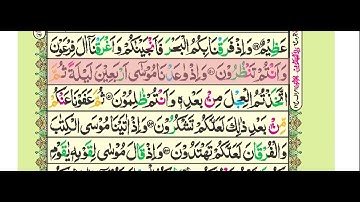 عَظِيْمٌ ۝ وَاِذْ فَرَقْنَا بِكُمُ الْبَحْرَ فَاَنْجَيْنٰكُمْ وَاَغْرَقْنَآ اٰلَ فِرْعَوْنَ
وَاَنْتُمْ تَنْظُرُوْنَ ۝ وَاِذْ وٰعَدْنَا مُوْسٰٓى اَرْبَعِيْنَ لَيْلَةً ثُمَّ
اتَّخَذْتُمُ الْعِجْلَ مِنْۢ بَعْدِهٖ وَاَنْتُمْ ظٰلِمُوْنَ ۝ ثُمَّ عَفَوْنَا عَنْكُمْ
مِّنْۢ بَعْدِ ذٰلِكَ لَعَلَّكُمْ تَشْكُرُوْنَ ۝ وَاِذْ اٰتَيْنَا مُوْسَى الْكِتٰبَ
وَالْفُرْقَانَ لَعَلَّكُمْ تَهْتَدُوْنَ ۝ وَاِذْ قَالَ مُوْسٰى لِقَوْمِهٖ يٰقَوْمِ